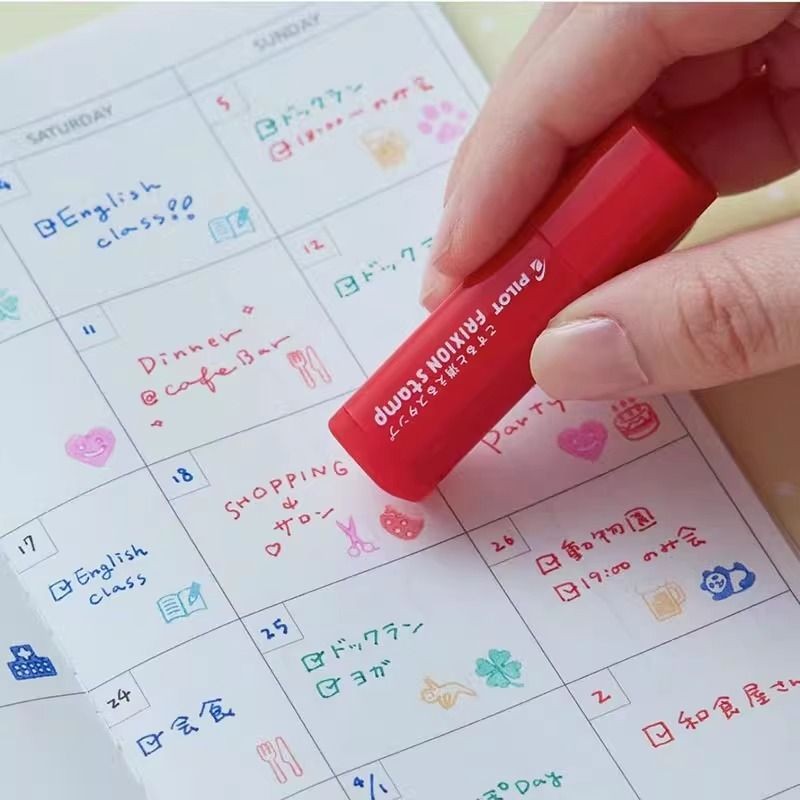 SATURDAY
SUNDAY
4
English
class!!
5
ドックラン
18:00〜のみ会
11
Dinner
@cafe Bar
12
ドック
PILOT FRIXION stamp
こすると消えるスタンプ
17
English
class
18
SHOPPING
&
サロン
party
24
会食
25
ドックラン
ヨガ
26
動物園
19:00 のみ会
4/1
Day
2
和食屋さん